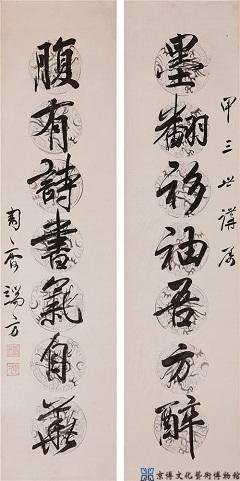 甲三世講屬
墨翻衫袖吾方醉
腹有詩書氣自華
匋齋端方
京博文化藝術博物館